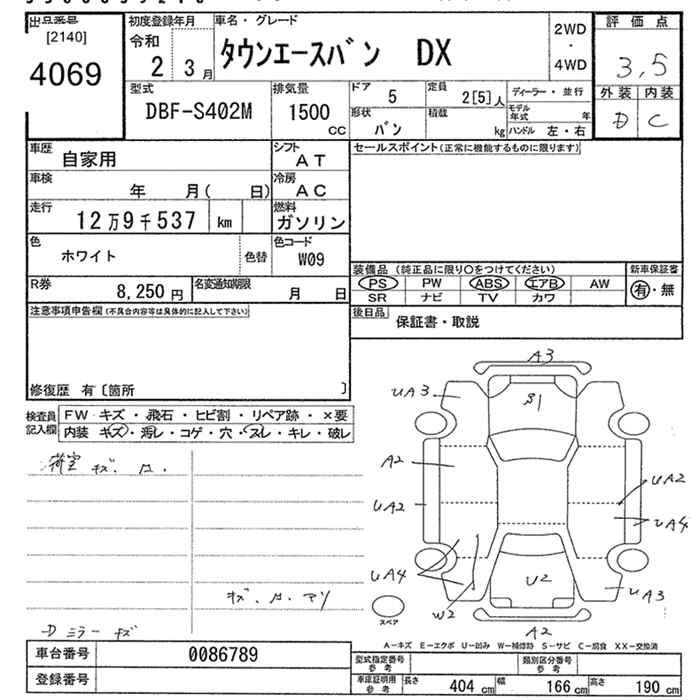 出品番号
[2140]
4069
初度登録年月
令和
2 3月
車名・グレード
タウンエースバン DX
2WD
・
4WD
評価点
3,5
外装 内装
D C
型式
DBF-S402M
排気量
1500
cc
ドア
5
定員
2[5]人
形状
バン
積載
kg
ディーラー・並行
モデル年式 年
ハンドル 左・右
車歴
自家用
シフト
AT
車検
年 月( 日)
冷房
AC
走行
12万9千537 km
燃料
ガソリン
色
ホワイト
色替
色コード
W09
R券
8,250 円
名変通知期限
月 日
セールスポイント(正常に機能するものに限ります)
装備品 (純正品に限り○をつけてください)
PS PW ABS エアB AW
SR ナビ TV カワ
新車保証書
有・無
後日品
保証書・取説
注意事項申告欄(不具合内容等は具体的に記入して下さい)
修復歴 有〔箇所 〕
検査員記入欄
FW キズ・飛石・ヒビ割・リペア跡・×要
内装 キズ・汚レ・コゲ・穴・スレ・キレ・破レ
荷室 キズ.
Dミラーキズ
A3
UA3
S1
A2
UA2
UA2
UA4
UA4
W2
U2
UA3
A2
スペア
A-キズ E-エクボ U-凹み W-補修跡 S-サビ C-腐食 XX-交換済
車台番号
0086789
登録番号
型式指定番号
参考
類別区分番号
参考
車庫証明用
参考
長さ 404 cm
幅 166 cm
高さ 190 cm